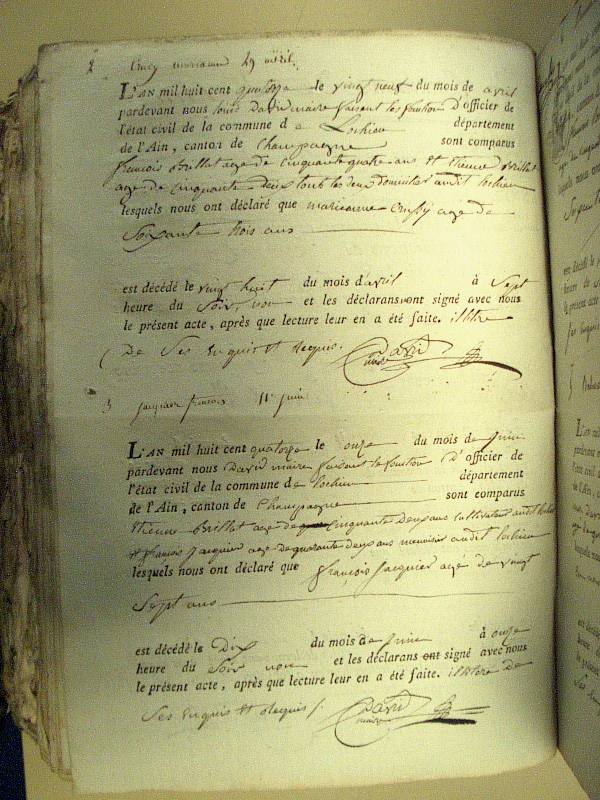 2 Crussy marianne 29 avril.
L'AN mil huit cent quatorze le vingt neuf du mois de avril
pardevant nous louis David maire faisant les fonction D'officier de
l'état civil de la commune de Lochieu département
de l'Ain, canton de Champagne sont comparus
françois Brillat age de cinquante quatre ans et Etienne Brillat
age de cinquante deux tous les deux domiciliés audit lochieu
lesquels nous ont déclaré que marieanne Crussy age de
soixante trois ans
est décédé le vingt huit du mois d'avril à sept
heure du soir, non et les déclarans ont signé avec nous
le présent acte, après que lecture leur en a été faite. illitere
De ses enquis et requis.
David
maire
3 jacquier francois 11e juin
L'AN mil huit cent quatorze le onze du mois de juin
pardevant nous David maire faisant le fonction D'officier de
l'état civil de la commune de lochieu département
de l'Ain, canton de Champagne sont comparus
Etienne Brillat age de cinquante deux ans cultivateur audit lochieu
et françois jacquier age de quarante deux ans menuisier audit lochieu
lesquels nous ont déclaré que françois jacquier agé de vingt
sept ans
est décédé le Dix du mois de juin à onze
heure du soir non et les déclarans ont signé avec nous
le présent acte, après que lecture leur en a été faite. illitere de
ses enquis et requis
David
maire